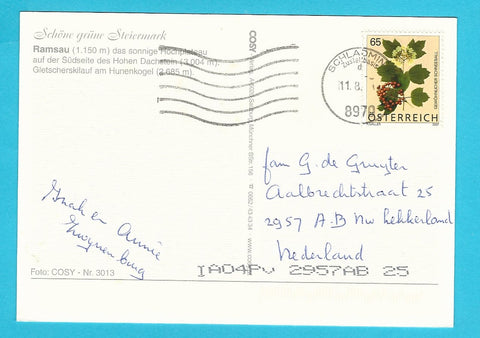 Schöne grüne Steiermark
Ramsau (1.150 m) das sonnige Hochplateau
auf der Südseite des Hohen Dachstein (3.004 m)
Gletscherskilauf am Hunerkogel (2.685 m).
Annie
Foto: COSY - Nr. 3013
COSY
SCHLADMING
11.8.
8970
65
GEWÖHNLICHER SCHNEEBALL
ÖSTERREICH
fam G. de Gruyter
Aalbrechtstraat 25
2957 A.B Nw Lekkerland
Nederland
2957AB 25